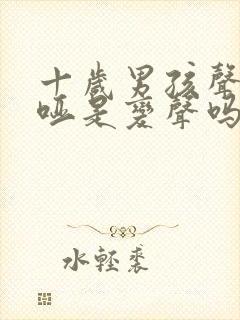 十歲男孩聲
啞是變聲嗎
水輕裘